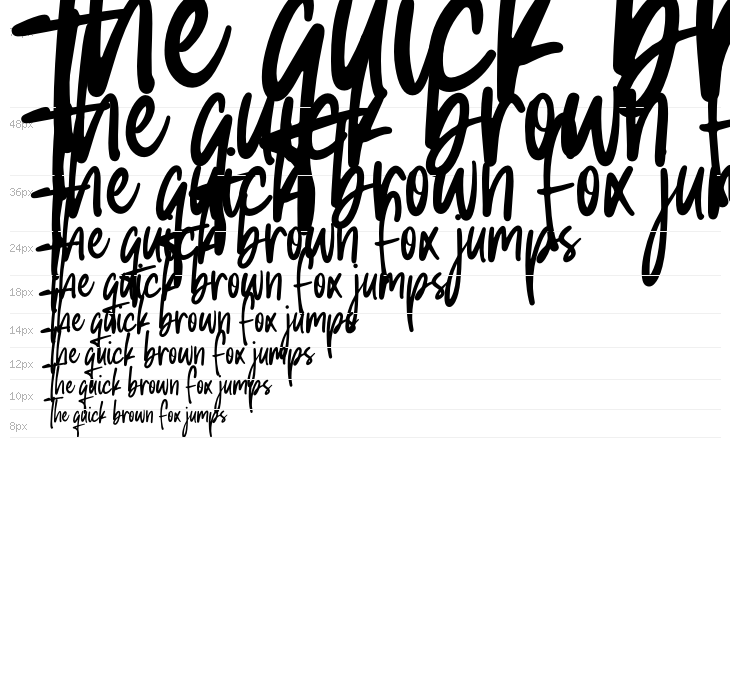 the quick br
48px the quick brown f
36px the quick brown fox jum
24px the quick brown fox jumps
18px the quick brown fox jumps
14px the quick brown fox jumps
12px the quick brown fox jumps
10px the quick brown fox jumps
8px the quick brown fox jumps